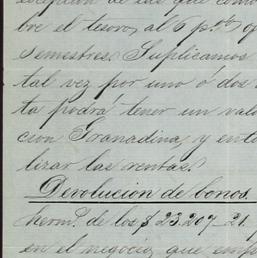 cepcion de las que como
bre el tesoro, al 6 p.%
semestres. Suplicamos
tal vez por uno ó dos
ta podrá tener un valo
cion Granadina, y ent
lizar las rentas.
Devolucion de bonos.
herm.s de los $ 23.207–21.
en el negocio, que emp